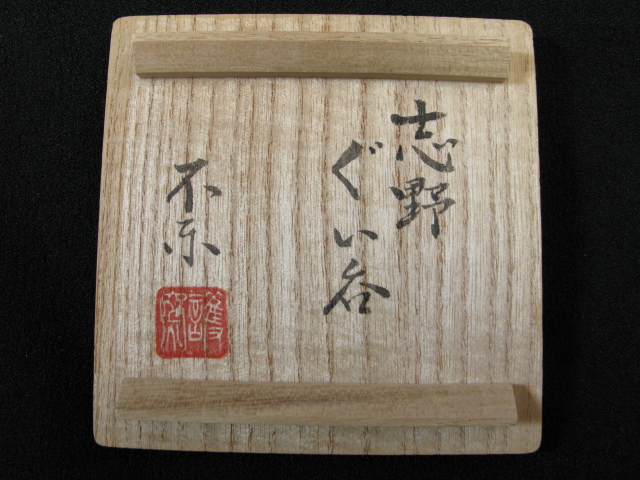 志野
ぐい呑
不东